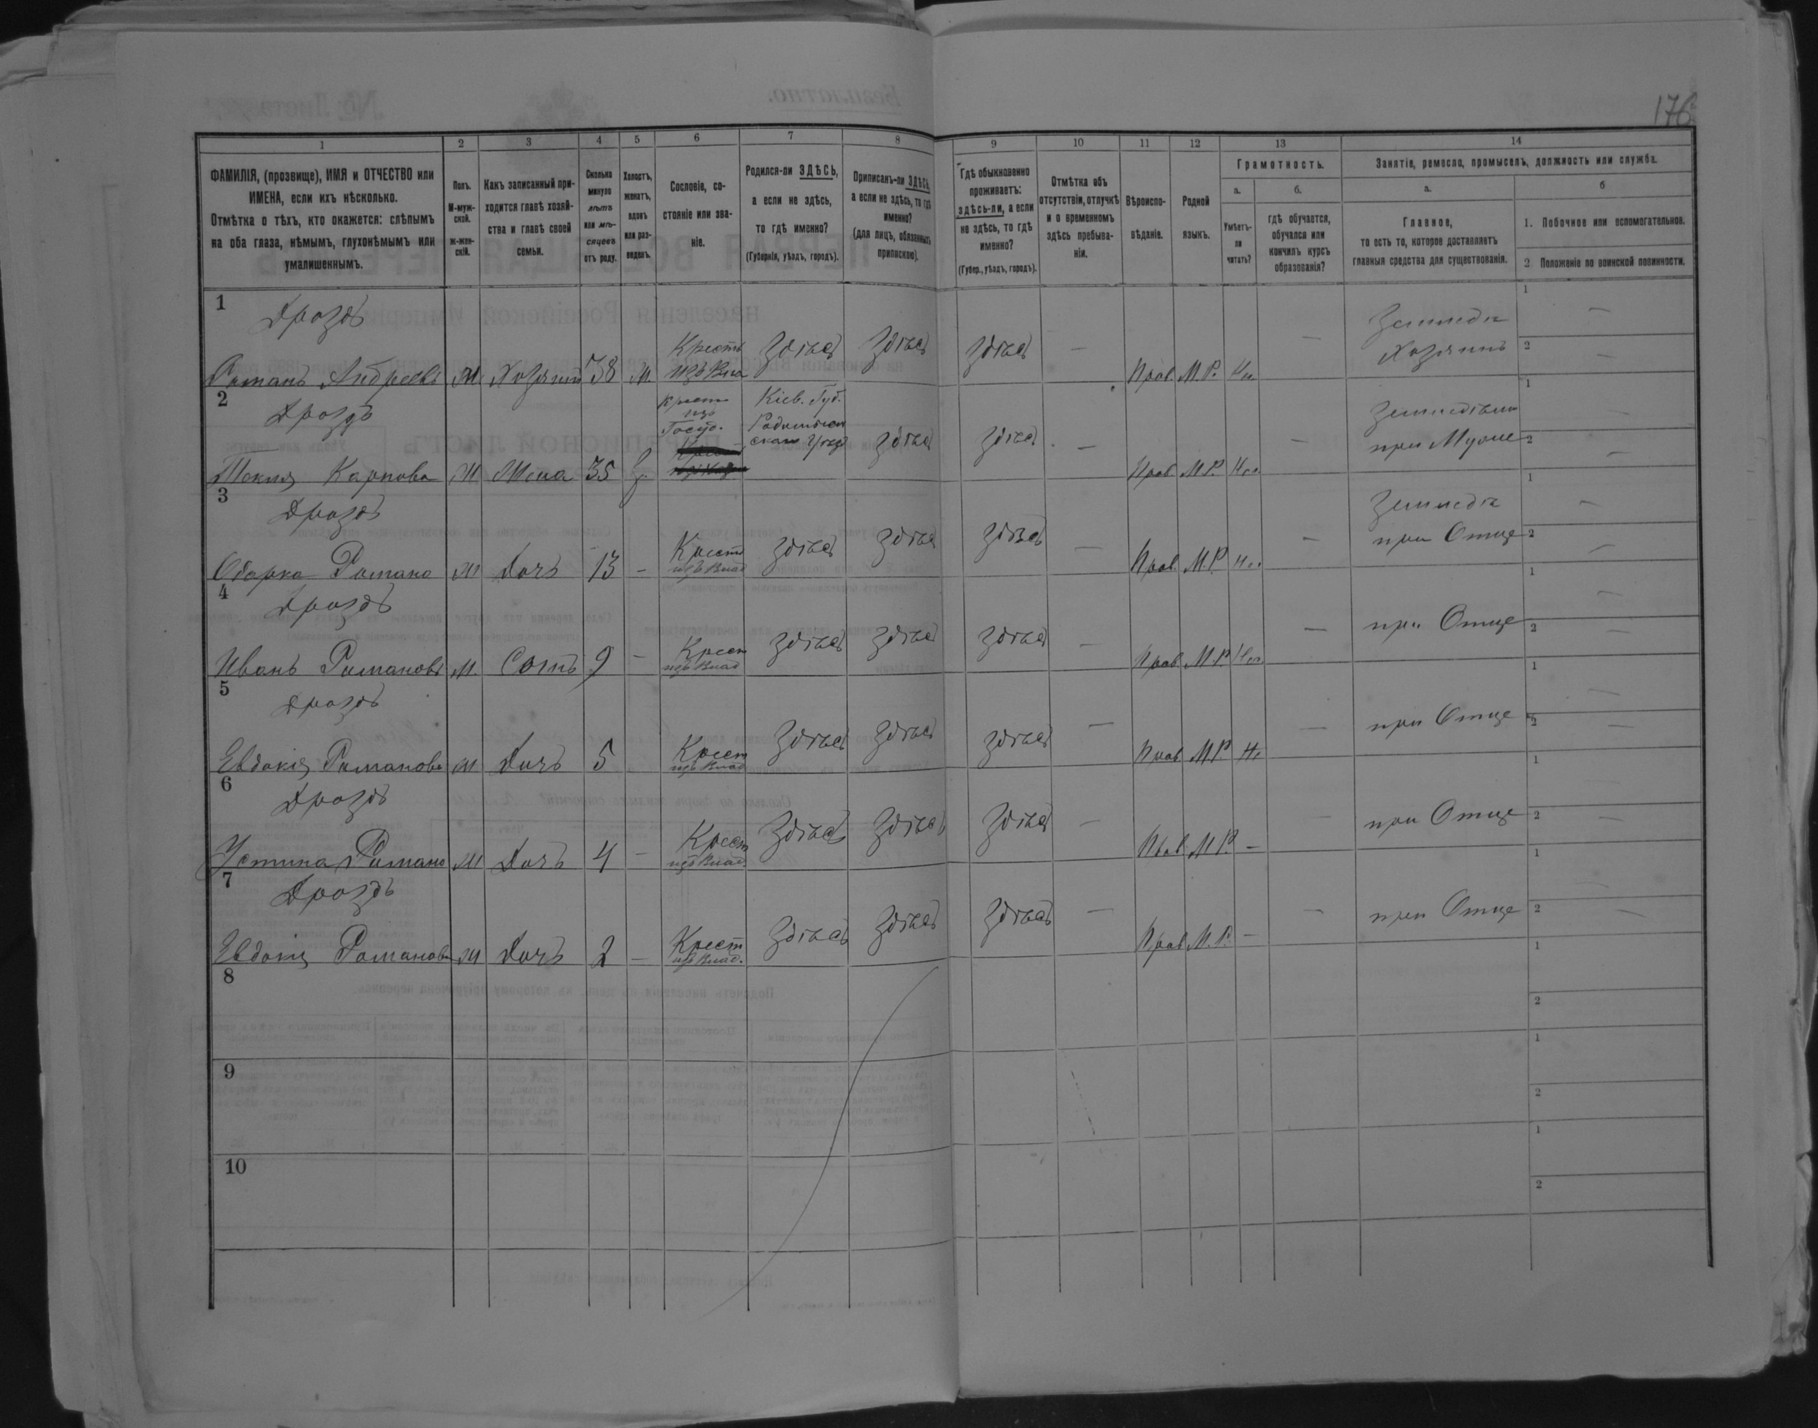 176
1 2 3 4 5 6 7 8 9 10 11 12 13 14
ФАМИЛІЯ, (прозвище), ИМЯ и ОТЧЕСТВО или
ИМЕНА, если ихъ нѣсколько.
Отмѣтка о тѣхъ, кто окажется: слѣпымъ
на оба глаза, нѣмымъ, глухонѣмымъ или
умалишеннымъ.
Полъ.
М-муж-
ской.
Ж-жен-
скій.
Какъ записанный при-
ходится главѣ хозяй-
ства и главѣ своей
семьи.
Сколько
минуло
лѣтъ
или мѣ-
сяцевъ
отъ роду.
Холостъ,
женатъ,
вдовъ
или раз-
веденъ.
Сословіе, со-
стояніе или зва-
ніе.
Родился-ли ЗДѢСЬ,
а если не здѣсь,
то гдѣ именно?
(Губернія, уѣздъ, городъ).
Приписанъ-ли ЗДѢСЬ,
а если не здѣсь, то гдѣ
именно?
(для лицъ, обязанныхъ
припискою).
Гдѣ обыкновенно
проживаетъ:
здѣсь-ли, а если
не здѣсь, то гдѣ
именно?
(Губер., уѣздъ, городъ).
Отмѣтка объ
отсутствіи, отлучкѣ
и о временномъ
здѣсь пребыва-
ніи.
Вѣроиспо-
вѣданіе.
Родной
языкъ.
Грамотность.
а.
Умѣетъ-
ли
читать?
б.
гдѣ обучается,
обучался или
кончилъ курсъ
образованія?
Занятіе, ремесло, промыселъ, должность или служба.
а.
Главное,
то есть то, которое доставляетъ
главныя средства для существованія.
б
1. Побочное или вспомогательное.
2 Положеніе по воинской повинности.
1
Дроздъ
Романъ Андреевъ М Хозяинъ 38 Ж.
Крестъ
изъ Вла
Здѣсь Здѣсь Здѣсь — Прав М.Р. —
Хозяинъ
1 —
2 —
2
Дроздъ
Текля Карпова Ж Жена 35 З.
Крест
изъ
Госуд.
Кіев. Губ.
Здѣсь Здѣсь — Прав М.Р. —
при Мужѣ
1
2 —
3
Дроздъ
Одарка Романо Ж Дочь 13 —
Крест
изъ Влад
Здѣсь Здѣсь Здѣсь — Прав. М.Р. —
при Отце
1 —
2 —
4
Дроздъ
Иванъ Романовъ М Сынъ 9 —
Крест
изъ Влад
Здѣсь Здѣсь Здѣсь — Прав М.Р. —
при Отце
1 —
2 —
5
Дроздъ
Евдокія Романова Ж Дочь 5
Крест
изъ Влад
Здѣсь Здѣсь Здѣсь — Прав М.Р. —
при Отце
1 —
2 —
6
Дроздъ
Устина Романо Ж Дочь 4 —
Крест
изъ Влад.
Здѣсь Здѣсь Здѣсь — Прав. М.Р. —
при Отце
1
2 —
7
Дроздъ
Евдокія Романова Ж Дочь 2 —
Крест
изъ Влад.
Здѣсь Здѣсь Здѣсь — Прав М.Р. — —
при Отце
1
2 —
8
1
2
9
1
2
10
1
2